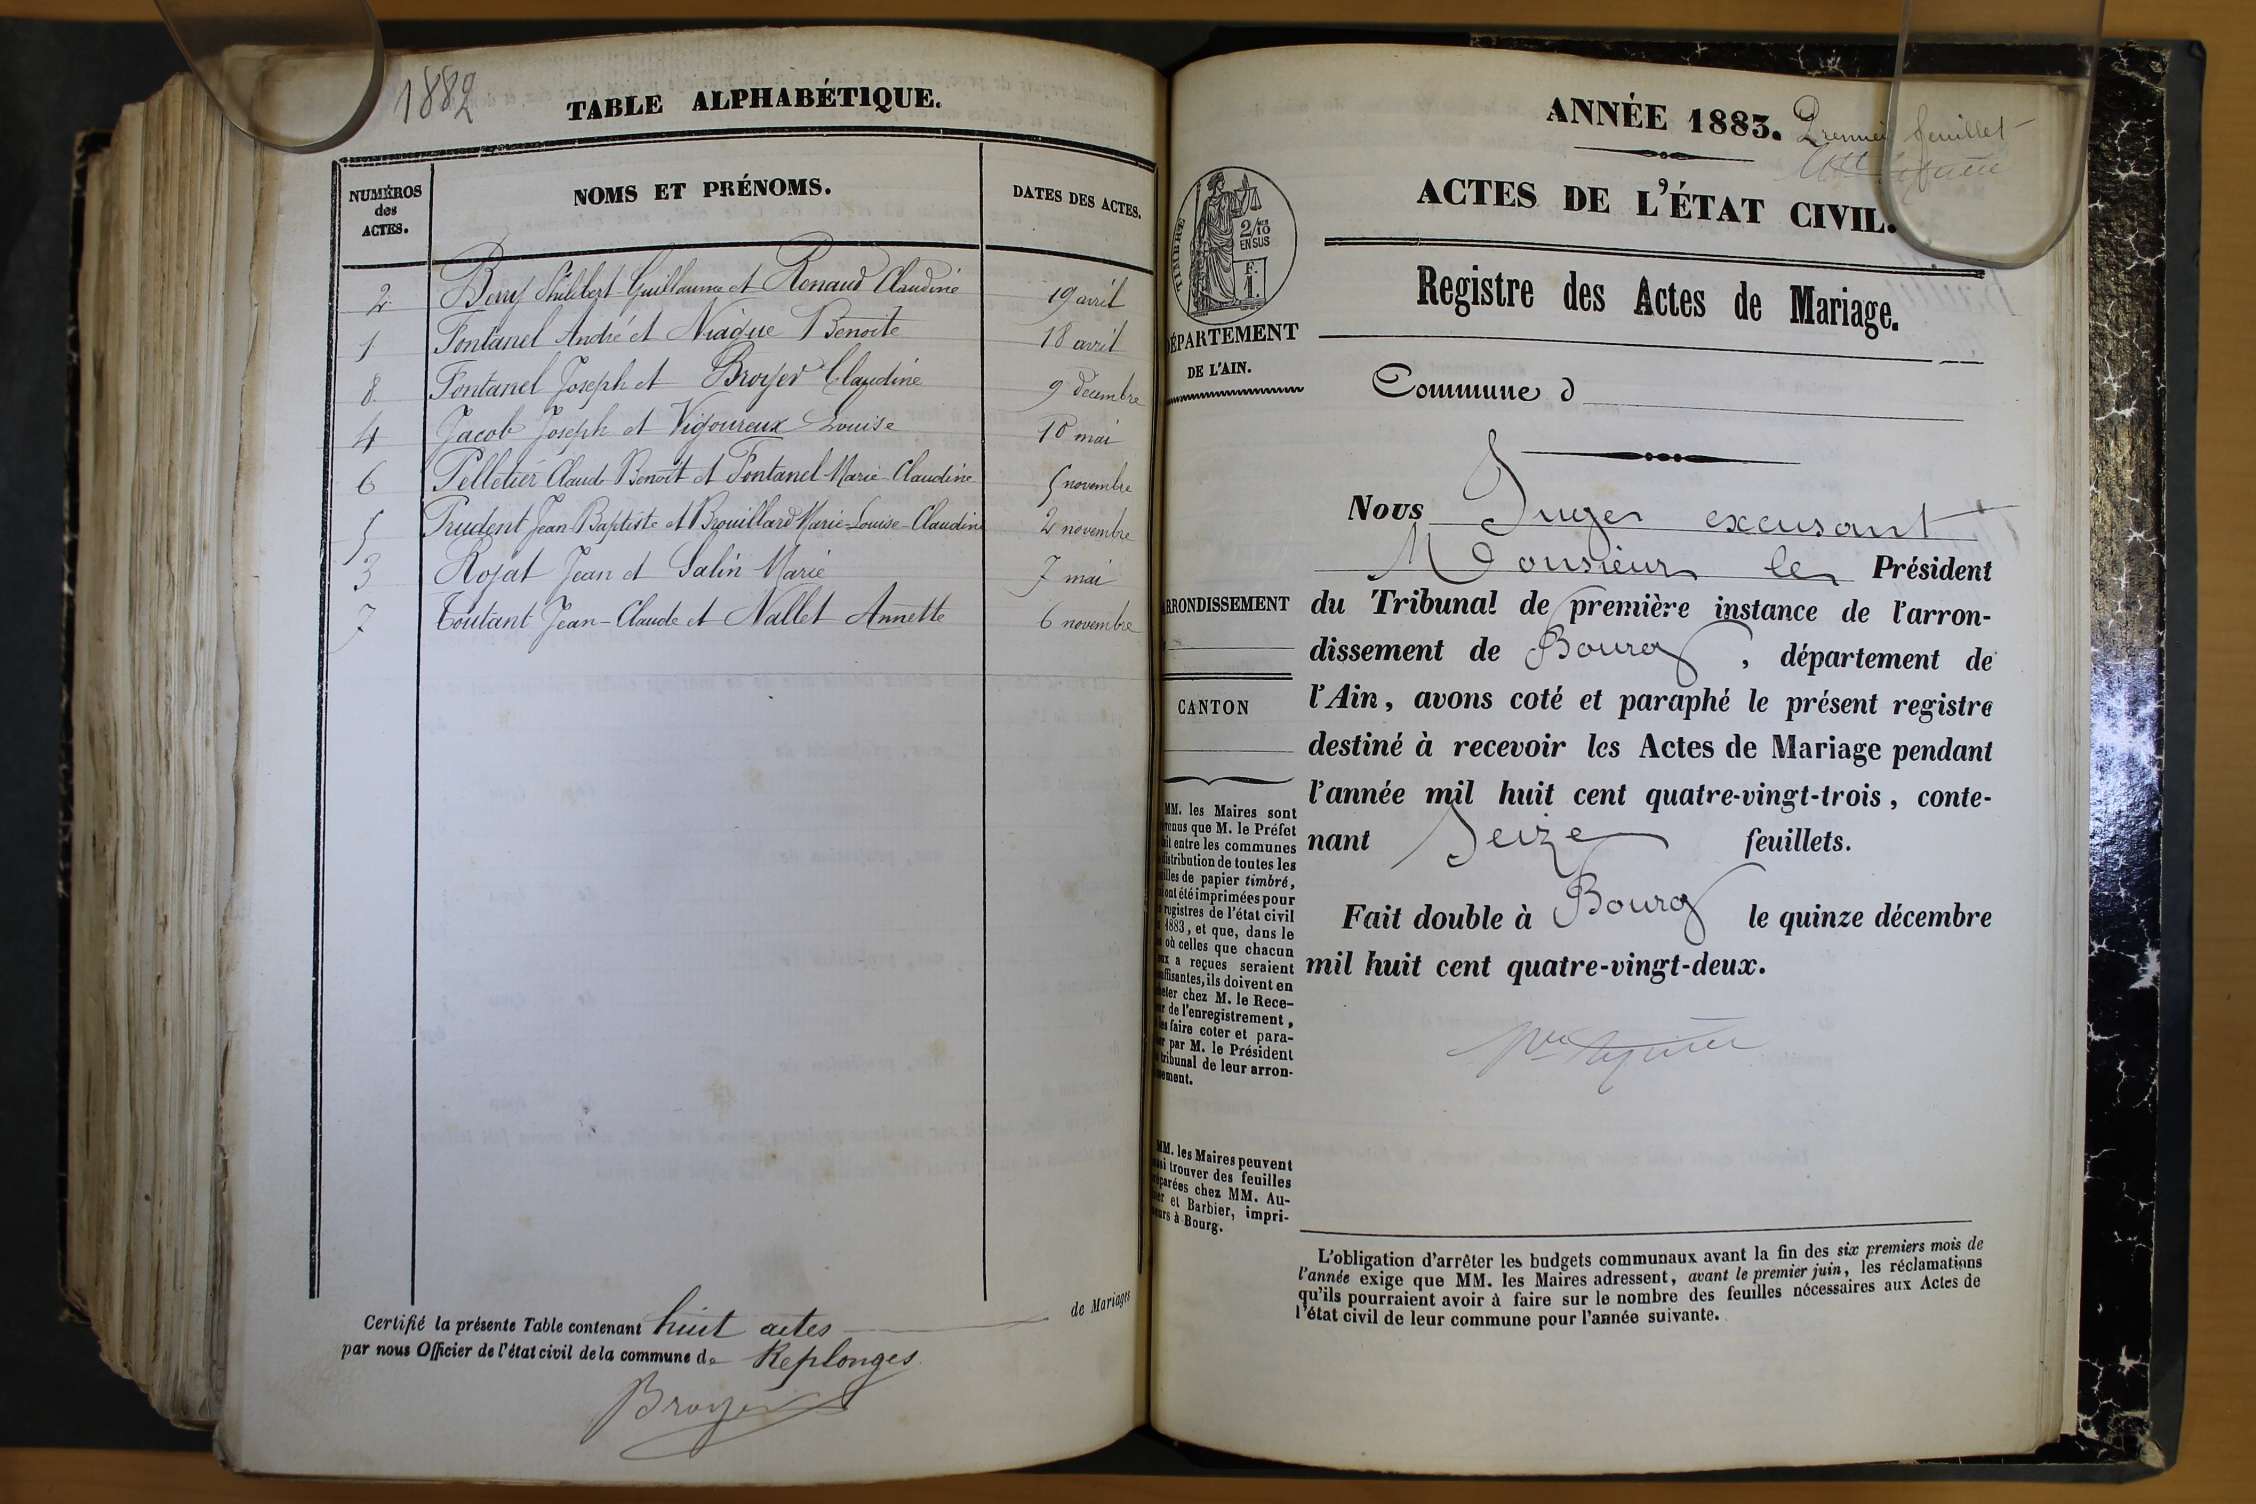 1882
TABLE ALPHABÉTIQUE.
NUMÉROS des ACTES.
NOMS ET PRÉNOMS.
DATES DES ACTES.
2 Berry Philibert Guillaume et Renaud Claudine 19 avril
1 Fontanel André et Niogue Benoite 18 avril
8 Fontanel Joseph et Broyer Claudine 9 décembre
4 Jacob Joseph et Vigoureux Louise 10 mai
6 Pelletier Claude Benoît et Fontanel Marie Claudine 5 novembre
5 Prudent Jean-Baptiste et Brouillard Marie-Louise-Claudine 2 novembre
3 Rojat Jean et Salin Marie 7 mai
7 Toutant Jean-Claude et Nallet Annette 6 novembre
Certifié la présente Table contenant huit actes de Mariages
par nous Officier de l'état civil de la commune de Replonges
Broyer
ANNÉE 1883.
Premier feuillet
ACTES DE L'ÉTAT CIVIL.
TIMBRE
2/10
EN SUS
F.
1.
Registre des Actes de Mariage.
DÉPARTEMENT
DE L'AIN.
Commune d
Nous Juge excusant
Monsieur le Président
du Tribunal de première instance de l'arron-
dissement de Bourg, département de
l'Ain, avons coté et paraphé le présent registre
destiné à recevoir les Actes de Mariage pendant
l'année mil huit cent quatre-vingt-trois, conte-
nant Seize feuillets.
Fait double à Bourg le quinze décembre
mil huit cent quatre-vingt-deux.
ARRONDISSEMENT
CANTON
MM. les Maires sont
venus que M. le Préfet
ait entre les communes
distribution de toutes les
illes de papier timbré,
ont été imprimées pour
registres de l'état civil
1883, et que, dans le
où celles que chacun
eux a reçues seraient
uffisantes, ils doivent en
heter chez M. le Rece-
ur de l'enregistrement,
les faire coter et para-
er par M. le Président
tribunal de leur arron-
sement.
MM. les Maires peuvent
ssi trouver des feuilles
éparées chez MM. Au-
ier et Barbier, impri-
eurs à Bourg.
L'obligation d'arrêter les budgets communaux avant la fin des six premiers mois de
l'année exige que MM. les Maires adressent, avant le premier juin, les réclamations
qu'ils pourraient avoir à faire sur le nombre des feuilles nécessaires aux Actes de
l'état civil de leur commune pour l'année suivante.